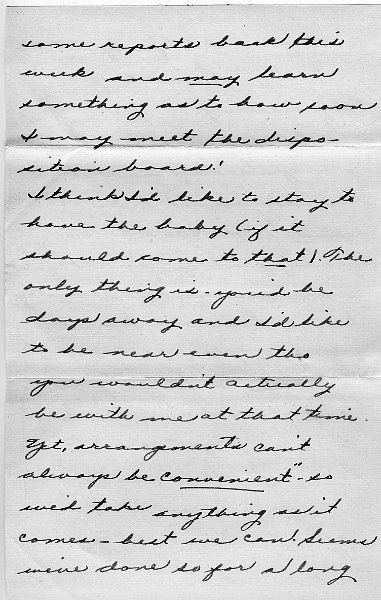 some reports back this
week and may learn
something as to how soon
I may meet the dispo-
sition board!
I think I'd like to stay to
have the baby (if it
should come to that). The
only thing is - you'd be
days away and I'd like
to be near even tho
you wouldn't actually
be with me at that time.
Yet, arrangements can't
always be convenient" - so
we'd take anything as it
comes - best we can! Seems
we've done so for a long